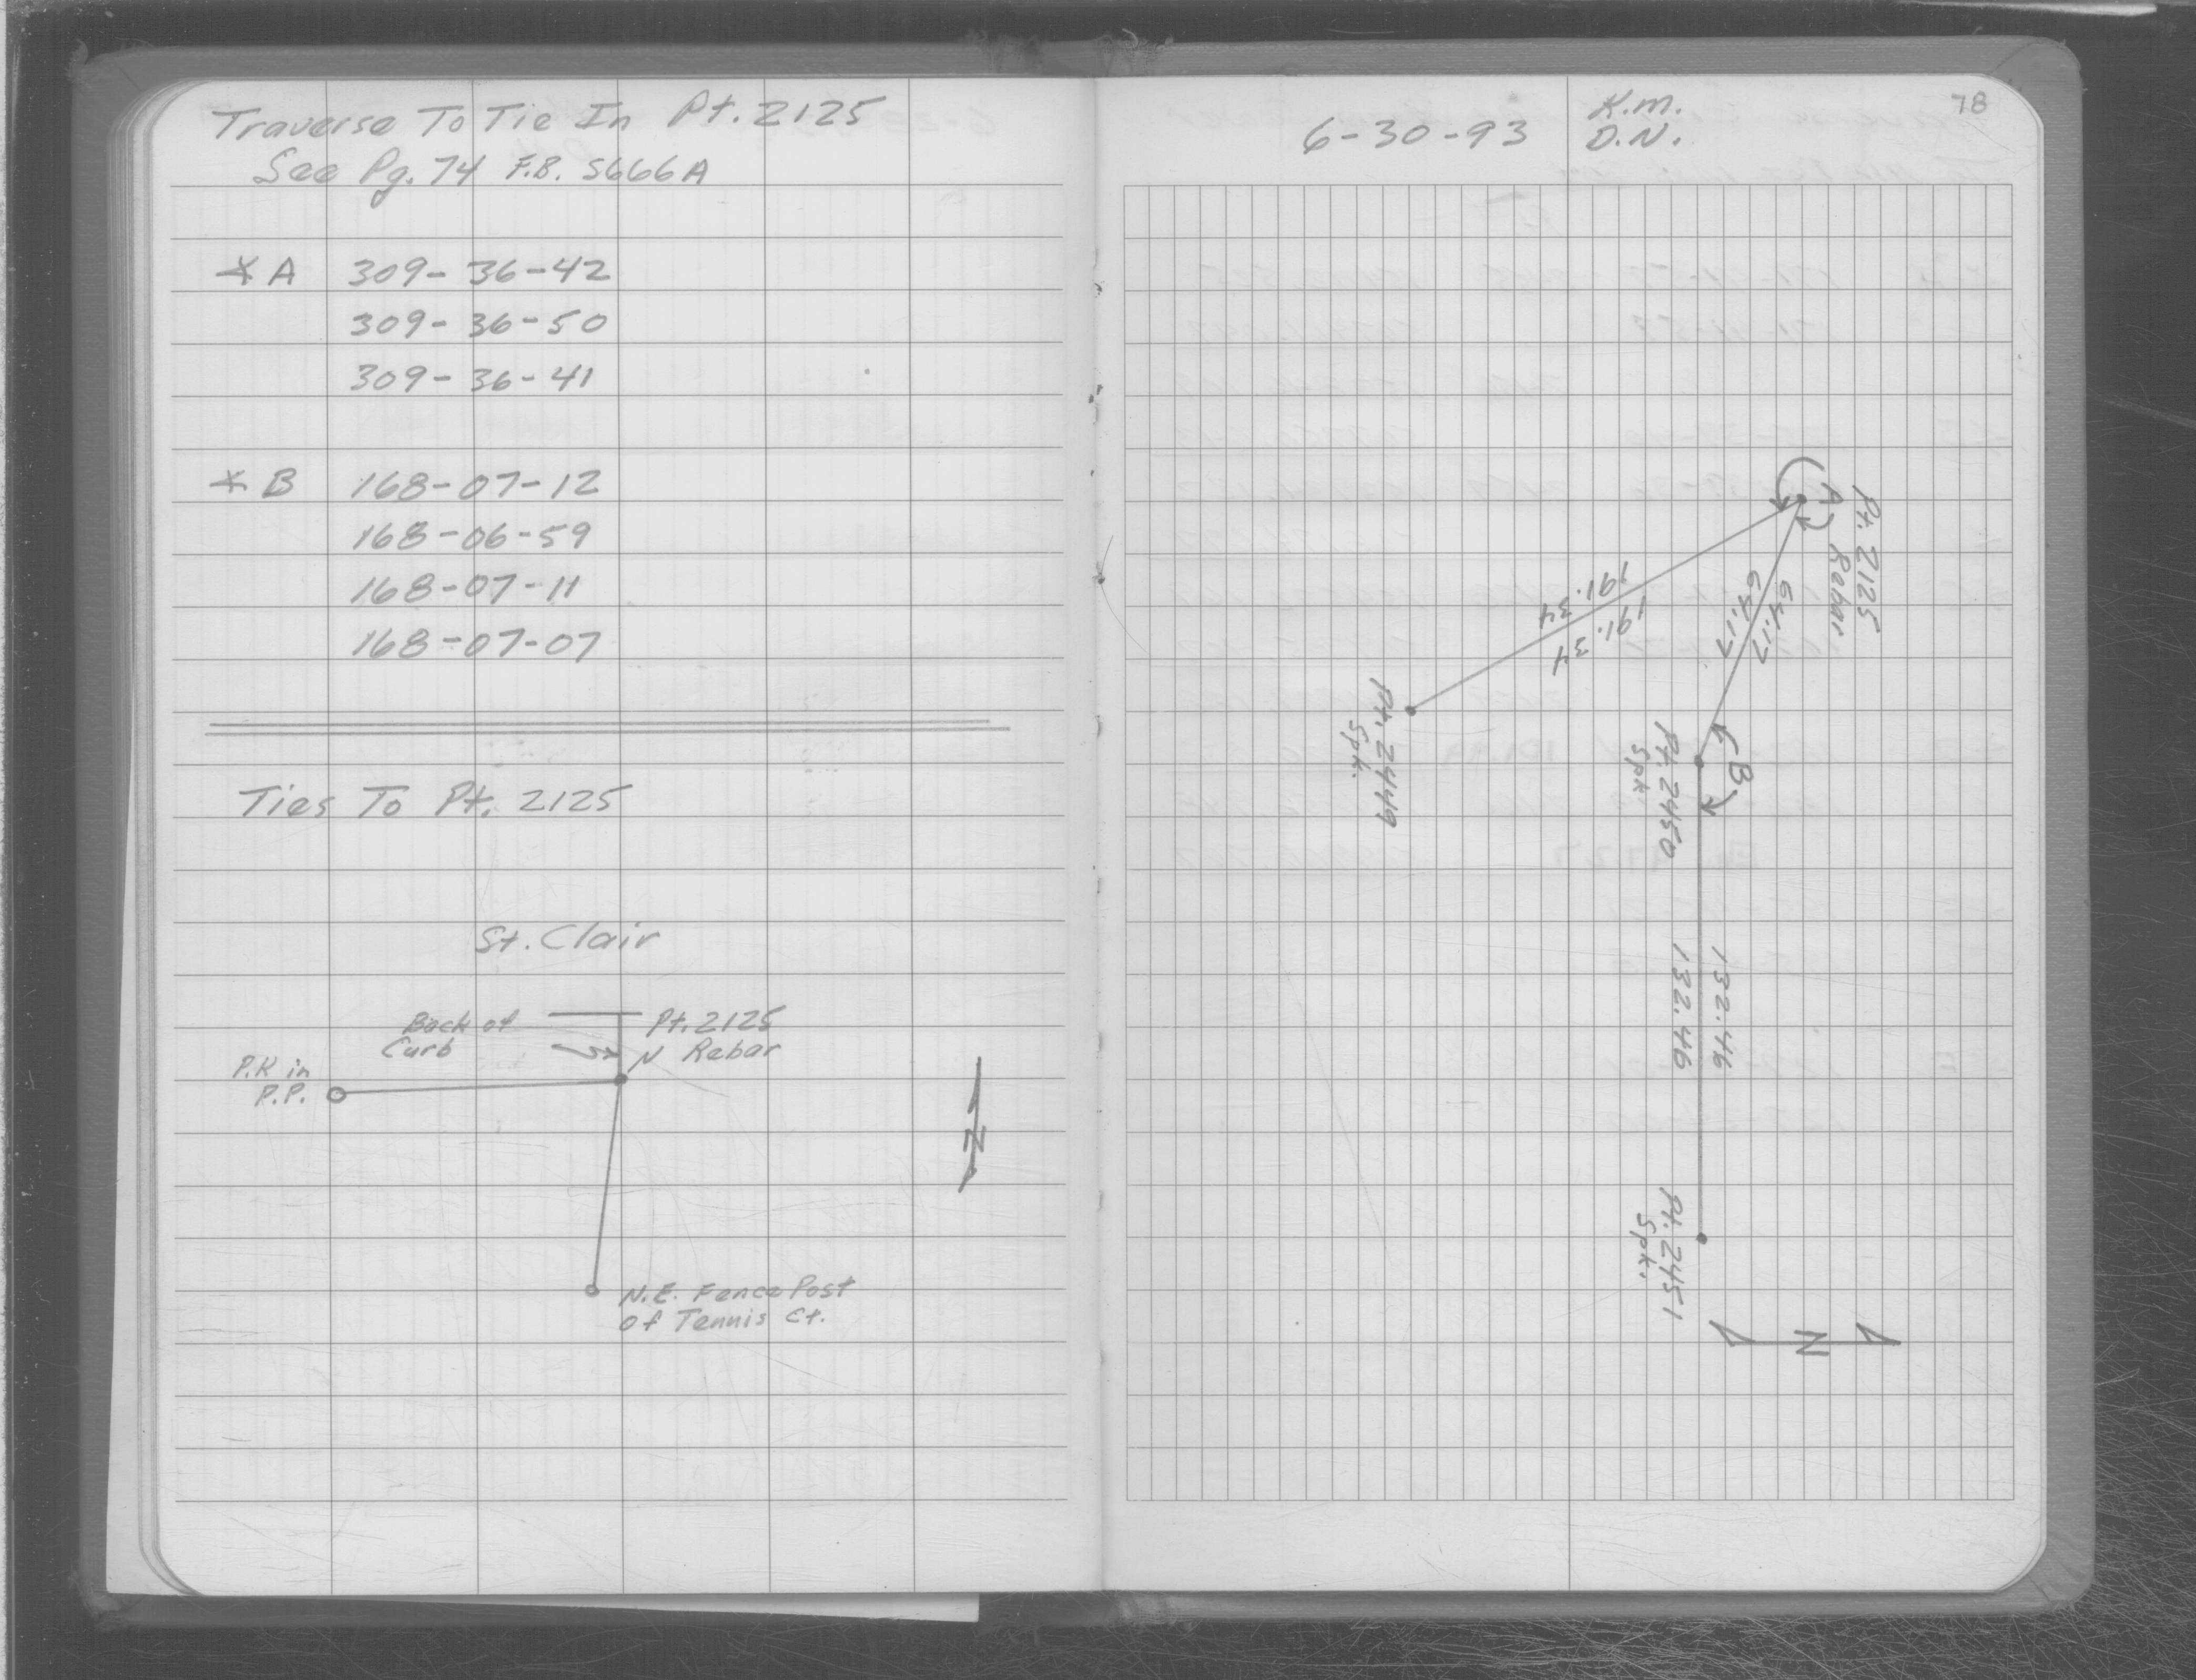 Traverse To Tie In Pt. 2125
See Pg. 74 F.B. 5666A
∠ A 309-36-42
309-36-50
309-36-41
∠ B 168-07-12
168-06-59
168-07-11
168-07-07
Ties To Pt. 2125
St. Clair
Back of
Curb
Pt. 2125
Rebar
P.K in
P.P.
N
N.E. Fence Post
of Tennis Ct.
78
6-30-93
K.M.
D.N.
A
Pt. 2125
Rebar
191.34
191.34
64.17
64.17
Pt. 2449
Spk.
B
Pt. 2450
Spk
132.46
132.46
Pt. 2451
Spk.
N